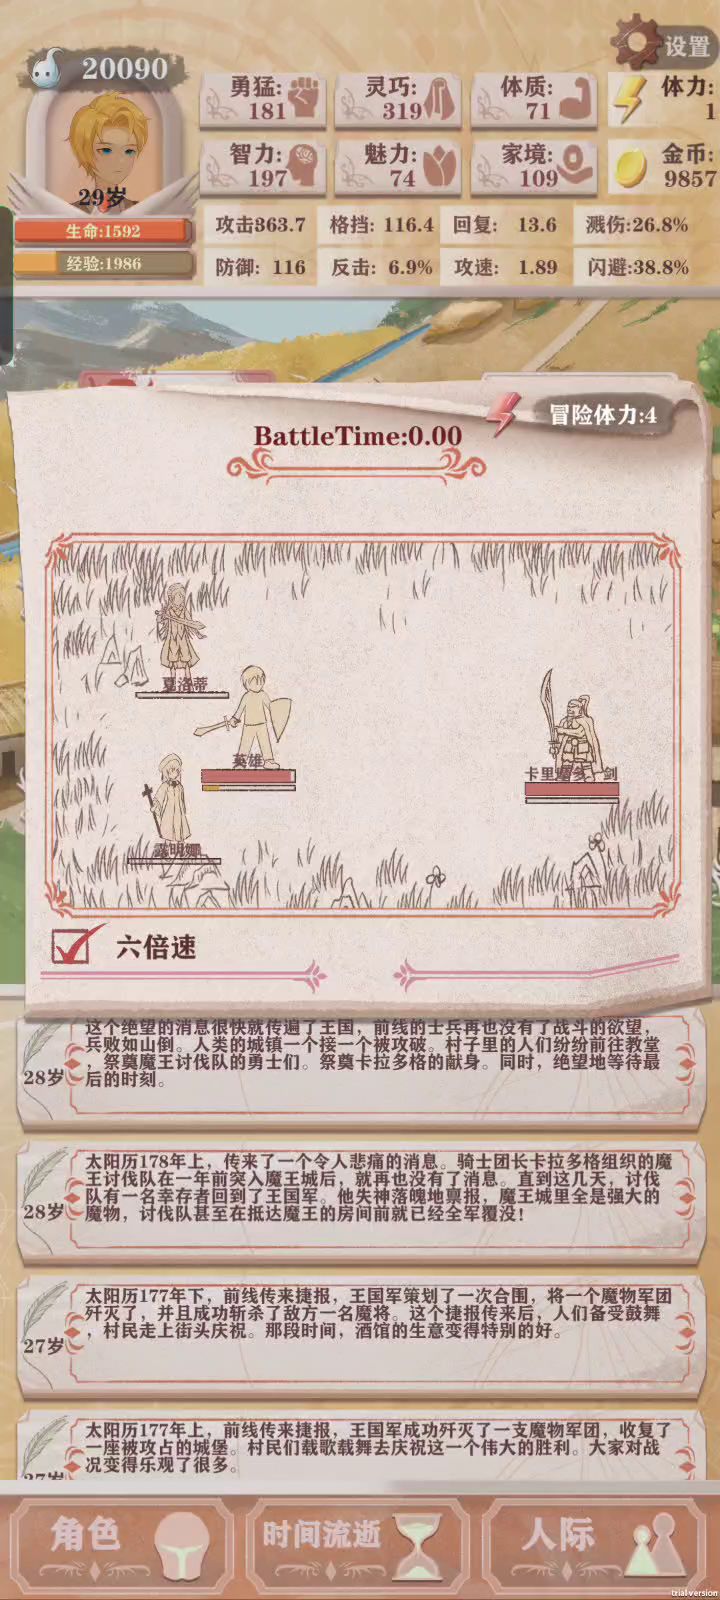 设置
20090
勇猛:
181
灵巧:
319
体质:
71
体力:
1
智力:
197
魅力:
74
家境:
109
金币:
9857
29岁
生命:1592
经验:1986
攻击363.7
格挡: 116.4
回复: 13.6
溅伤:26.8%
防御: 116
反击: 6.9%
攻速: 1.89
闪避:38.8%
冒险体力:4
BattleTime:0.00
夏洛蒂
英雄
露明娜
六倍速
这个绝望的消息很快就传遍了王国，前线的士兵再也没有了战斗的欲望，
兵败如山倒。人类的城镇一个接一个被攻破。村子里的人们纷纷前往教堂
，祭奠魔王讨伐队的勇士们。祭奠卡拉多格的献身。同时，绝望地等待最
后的时刻。
28岁
太阳历178年上，传来了一个令人悲痛的消息。骑士团长卡拉多格组织的魔
王讨伐队在一年前突入魔王城后，就再也没有了消息。直到这几天，讨伐
队有一名幸存者回到了王国军。他失神落魄地禀报，魔王城里全是强大的
魔物，讨伐队甚至在抵达魔王的房间前就已经全军覆没！
28岁
太阳历177年下，前线传来捷报，王国军策划了一次合围，将一个魔物军团
歼灭了，并且成功斩杀了敌方一名魔将。这个捷报传来后，人们备受鼓舞
，村民走上街头庆祝。那段时间，酒馆的生意变得特别的好。
27岁
太阳历177年上，前线传来捷报，王国军成功歼灭了一支魔物军团，收复了
一座被攻占的城堡。村民们载歌载舞去庆祝这一个伟大的胜利。大家对战
况变得乐观了很多。
27岁
角色
时间流逝
人际
trial version